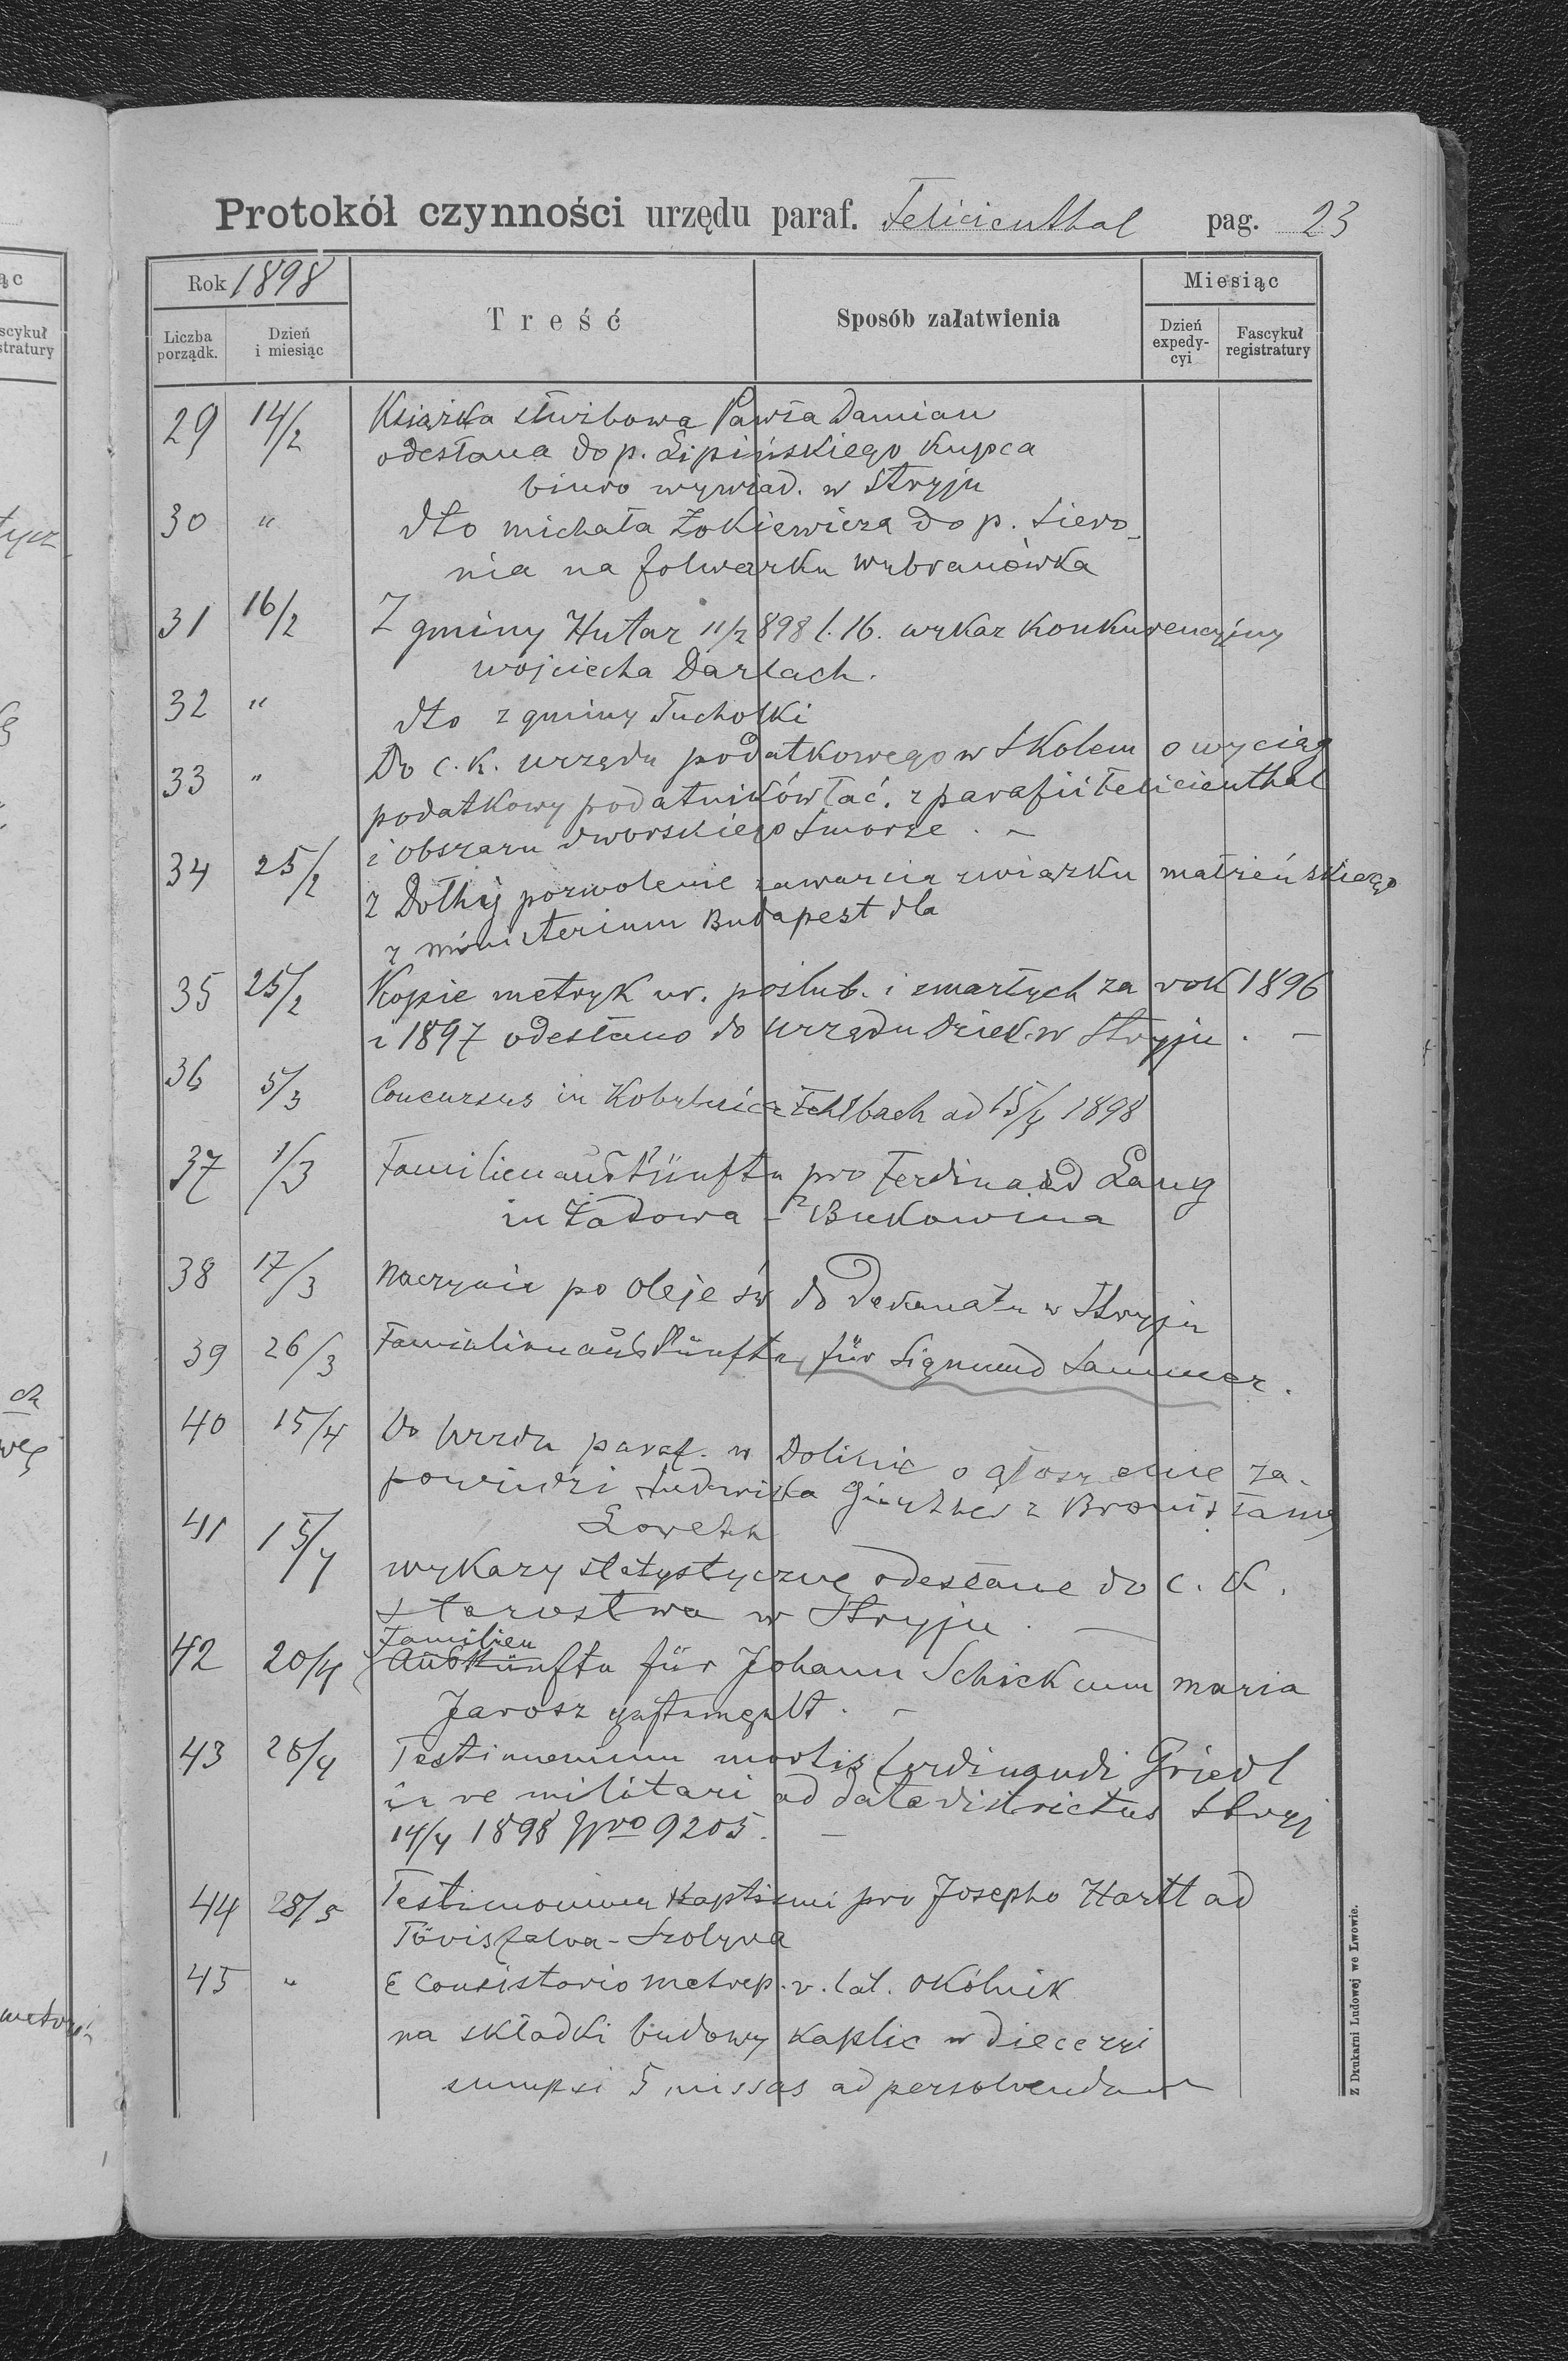 Protokół czynności urzędu paraf. Felicienthal pag. 23
Rok 1898
Liczba porządk.
Dzień i miesiąc
Treść
Sposób załatwienia
Miesiąc
Dzień expedycyi
Fascykuł registratury
29 14/2 Książka służbowa Pawła Damian
odesłana do p. Lipińskiego kupca
biuro wywiad. w Stryju
30 " dto michała Żokiewicza do p. Siero-
nia na folwarku Wybranówka
31 16/2 Z gminy Hutar 11/2 898 l. 16. wykaz konkurencyjny
wojciecha Darlach.
32 " dto z gminy Tucholki
33 " Do c. k. urzędu podatkowego w Skolem o wyciąg
podatkowy podatników łać. z parafii Felicienthal
i obszaru dworskiego Smorze. –
34 25/2 z pozwolenie zawarcia związku małżeńskiego
z ministerium Budapest dla
35 25/2 Kopie metryk ur. poślub. i zmarłych za rok 1896
i 1897 odesłano do Urzędu dziek. w Stryju. –
36 5/3 Concursus in ad 1898
37 1/3 Familienauskünfte pro Ferdinand Lang
in Żadowa – Bukowina
38 17/3 Naczynie po oleje św do Dekanatu w Stryju
39 26/3 Familienauskünfte für Sigmund Sammer.
40 15/4 Do Urzędu paraf. w Dolinie o ogłoszenie za-
powiedzi Ludwika z Bronisławą
41 15/4 wykazy statystyczne odesłane do c. k.
Starostwa w Stryju. –
42 20/4 Familien
Auskünfte für Johann Schick cum maria
Jarosz
43 28/4 Testimonium mortis Ferdinandi Griedl
in re militari ad districtus Stryj
14/4 1898 Nro 9205. –
44 28/5 Testimonium Baptismi pro Josepho Hartt ad
Tövisfalva - Szolyva
45 " E Consistorio metrop. r. lat. okólnik
na składki budowy kaplic w diecezyi
sumpsi 5 missas ad persolvendam
Z Drukarni Ludowej we Lwowie.